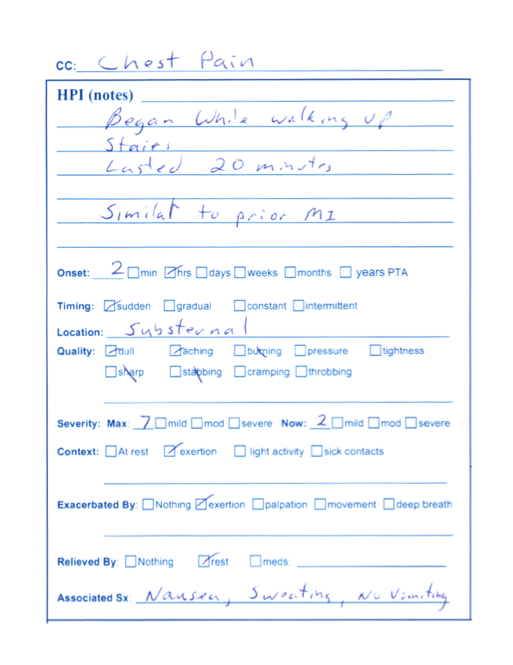 CC: Chest Pain
HPI (notes)
Began While walking up
Stairs
Lasted 20 minutes
Similar to prior MI
Onset: 2 ☐min ☑hrs ☐days ☐weeks ☐months ☐ years PTA
Timing: ☑sudden ☐gradual ☐constant ☐intermittent
Location: Substernal
Quality: ☑dull ☑aching ☐burning ☐pressure ☐tightness
☐sharp ☐stabbing ☐cramping ☐throbbing
Severity: Max: 7 ☐mild ☐mod ☐severe Now: 2 ☐mild ☐mod ☐severe
Context: ☐At rest ☑exertion ☐ light activity ☐sick contacts
Exacerbated By: ☐Nothing ☑exertion ☐palpation ☐movement ☐deep breath
Relieved By: ☐Nothing ☑rest ☐meds:
Associated Sx: Nausea, Sweating, No Vomiting